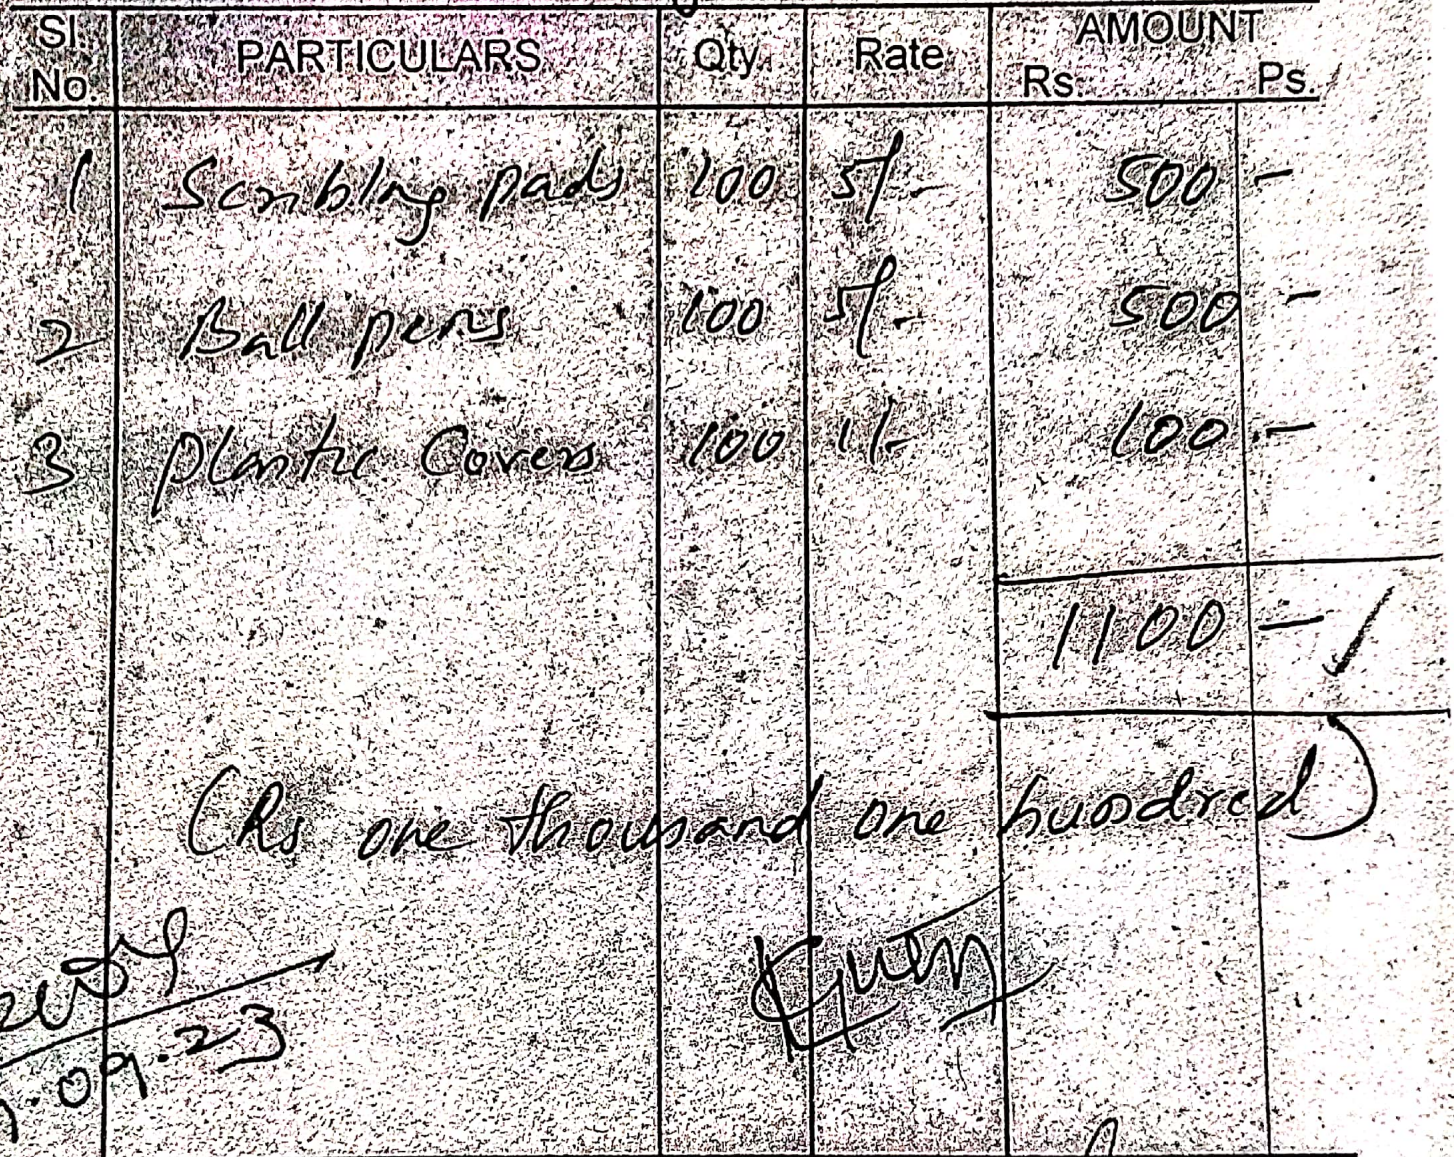 Sl. No. PARTICULARS Qty. Rate AMOUNT Rs. Ps.
1 Scribling pads 100 5/- 500 -
2 Ball pens 100 5/- 500 -
3 Plastic Covers 100 1/- 100 -
1100 -
(Rs one thousand one hundred)
.09.23